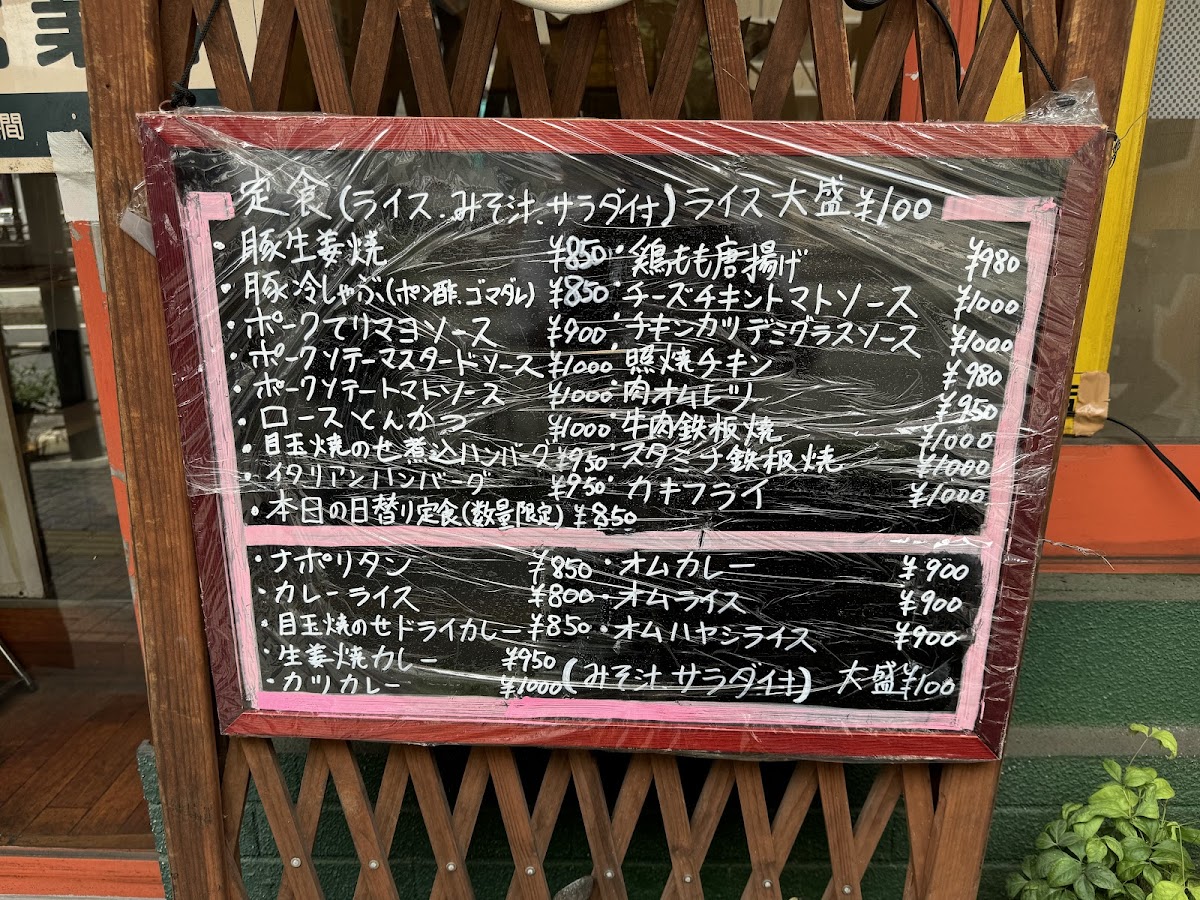 間
定食(ライス.みそ汁.サラダ付)ライス大盛¥100
・豚生姜焼 ¥850
・豚冷しゃぶ(ポン酢.ゴマダレ) ¥850
・ポークてりマヨソース ¥900
・ポークソテーマスタードソース ¥1000
・ポークソテートマトソース ¥1000
・ロースとんかつ ¥1000
・目玉焼のせ煮込ハンバーグ ¥950
・イタリアンハンバーグ ¥950
・本日の日替り定食(数量限定) ¥850
・鶏もも唐揚げ ¥980
・チーズチキントマトソース ¥1000
・チキンカツデミグラスソース ¥1000
・照焼チキン ¥980
・肉オムレツ ¥950
・牛肉鉄板焼 ¥1000
・スタミナ鉄板焼 ¥1000
・カキフライ ¥1000
・ナポリタン ¥850
・カレーライス ¥800
・目玉焼のせドライカレー ¥850
・生姜焼カレー ¥950
・カツカレー ¥1000
・オムカレー ¥900
・オムライス ¥900
・オムハヤシライス ¥900
(みそ汁 サラダ付) 大盛¥100